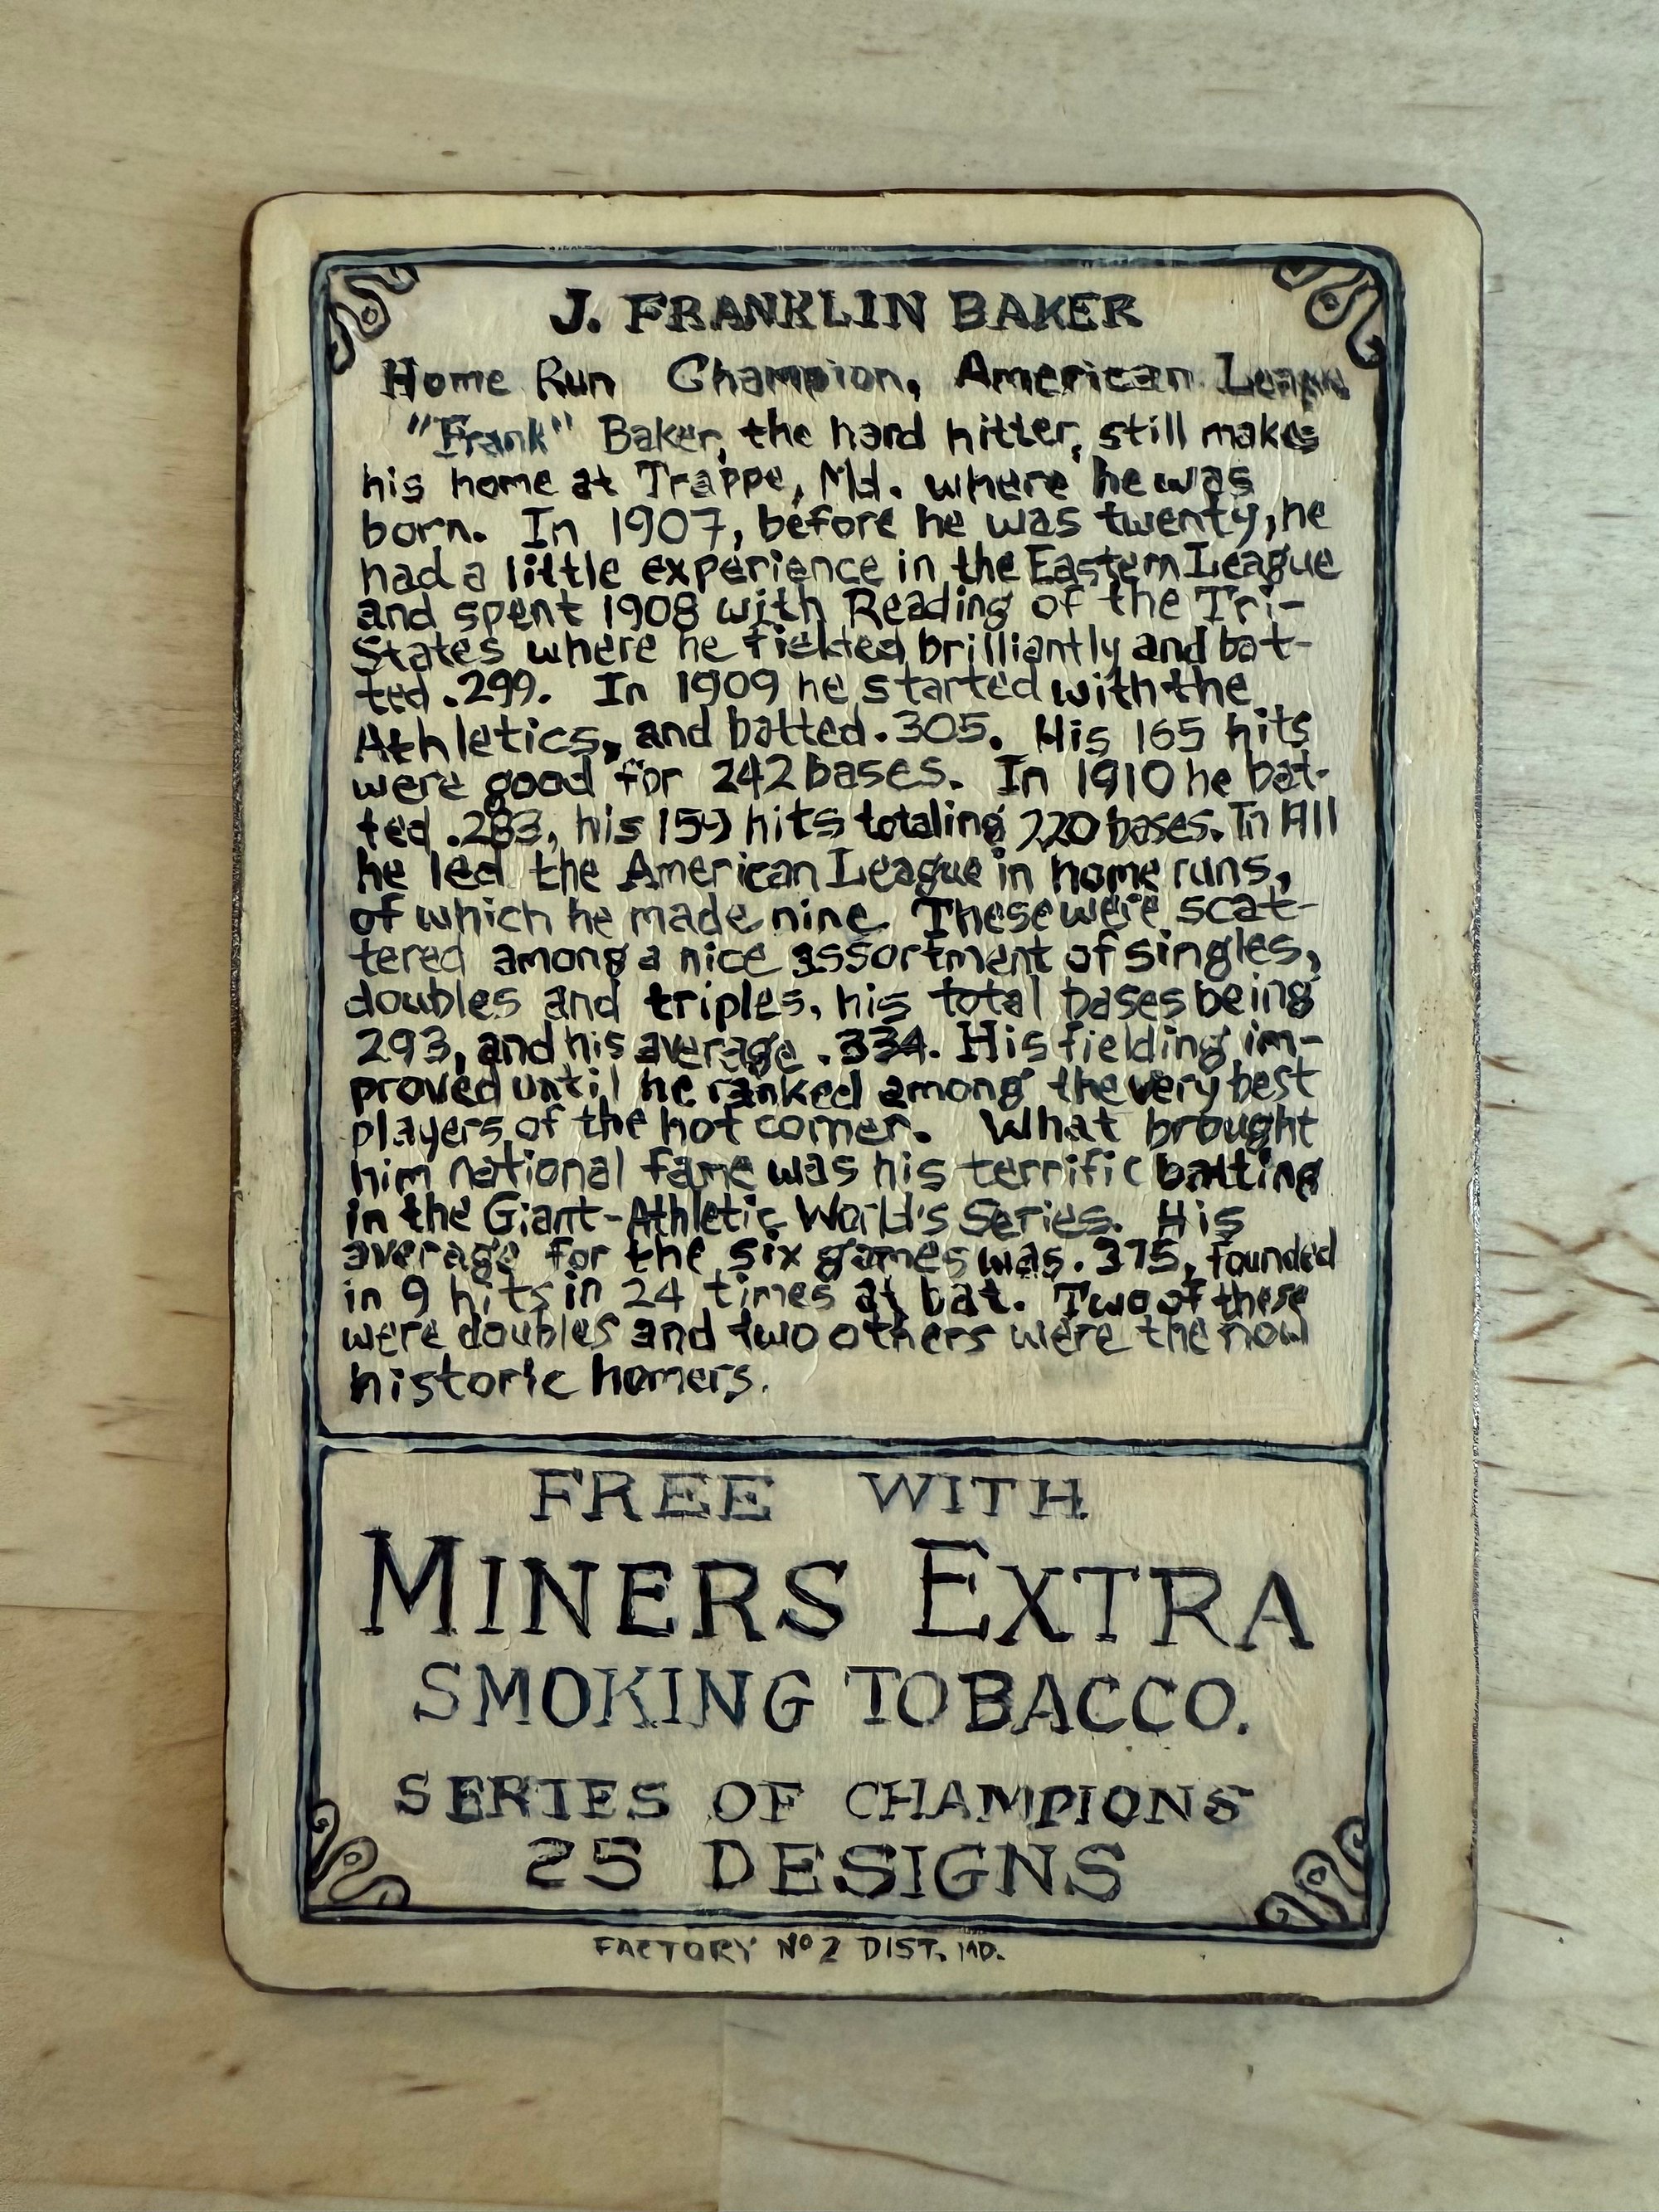 J. FRANKLIN BAKER
Home Run Champion, American
"Frank" Baker, the hard hitter, still makes
his home at Trappe, Md. where he was
born. In 1907, before he was twenty, he
had a little experience in the Eastern League
and spent 1908 with Reading of the Tri-
States where he fielded brilliantly and bat-
ted .299. In 1909 he started with the
Athletics, and batted .305. His 165 hits
were good for 242 bases. In 1910 he bat-
ted .283, his hits totaling 220 bases. In All
he led the American League in home runs,
of which he made nine These were scat-
tered among a nice assortment of singles,
doubles and triples, his total bases being
293, and his average .334. His fielding im-
proved until he ranked among the very best
players of the hot corner. What brought
him national fame was his terrific batting
in the Giant-Athletic World's Series. His
average for the six games was .375, founded
in 9 hits in 24 times at bat. Two of these
were doubles and two others were the now
historic homers.
FREE WITH
MINERS EXTRA
SMOKING TOBACCO.
SERIES OF CHAMPIONS
25 DESIGNS
FACTORY Nº 2 DIST. MD.